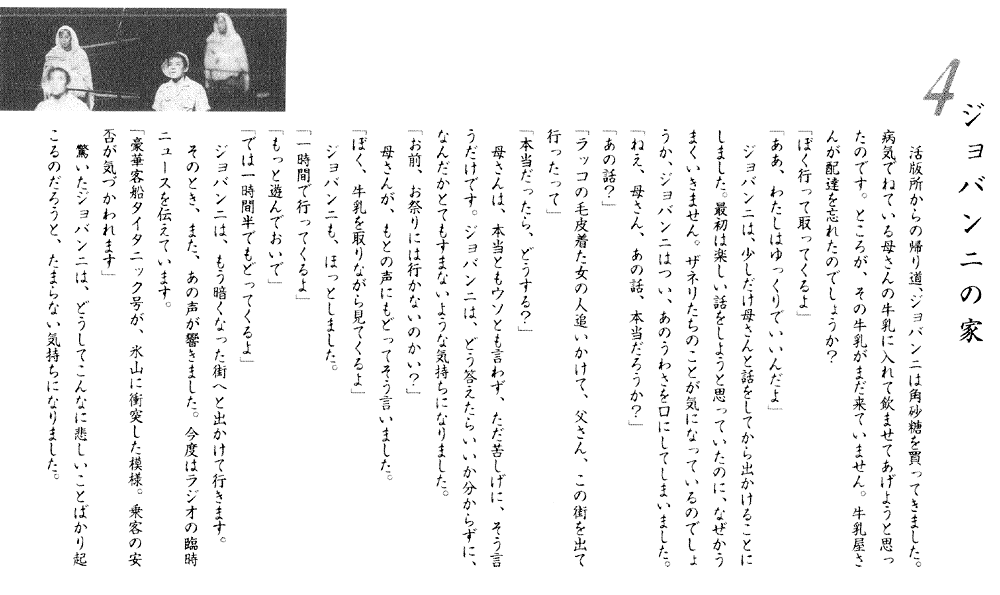 4
ジョバンニの家
活版所からの帰り道、ジョバンニは角砂糖を買ってきました。
病気でねている母さんの牛乳に入れて飲ませてあげようと思っ
たのです。ところが、その牛乳がまだ来ていません。牛乳屋さ
んが配達を忘れたのでしょうか？
「ぼく行って取ってくるよ」
「ああ、わたしはゆっくりでいいんだよ」
ジョバンニは、少しだけ母さんと話をしてから出かけることに
しました。最初は楽しい話をしようと思っていたのに、なぜかう
まくいきません。ザネリたちのことが気になっているのでしょ
うか、ジョバンニはつい、あのうわさを口にしてしまいました。
「ねえ、母さん、あの話、本当だろうか？」
「あの話？」
「ラッコの毛皮着た女の人追いかけて、父さん、この街を出て
行ったって」
「本当だったら、どうする？」
母さんは、本当ともウソとも言わず、ただ苦しげに、そう言
うだけです。ジョバンニは、どう答えたらいいか分からずに、
なんだかとてもすまないような気持ちになりました。
「お前、お祭りには行かないのかい？」
母さんが、もとの声にもどってそう言いました。
「ぼく、牛乳を取りながら見てくるよ」
ジョバンニも、ほっとしました。
「一時間で行ってくるよ」
「もっと遊んでおいで」
「では一時間半でもどってくるよ」
ジョバンニは、もう暗くなった街へと出かけて行きます。
そのとき、また、あの声が響きました。今度はラジオの臨時
ニュースを伝えています。
「豪華客船タイタニック号が、氷山に衝突した模様。乗客の安
否が気づかわれます」
驚いたジョバンニは、どうしてこんなに悲しいことばかり起
こるのだろうと、たまらない気持ちになりました。